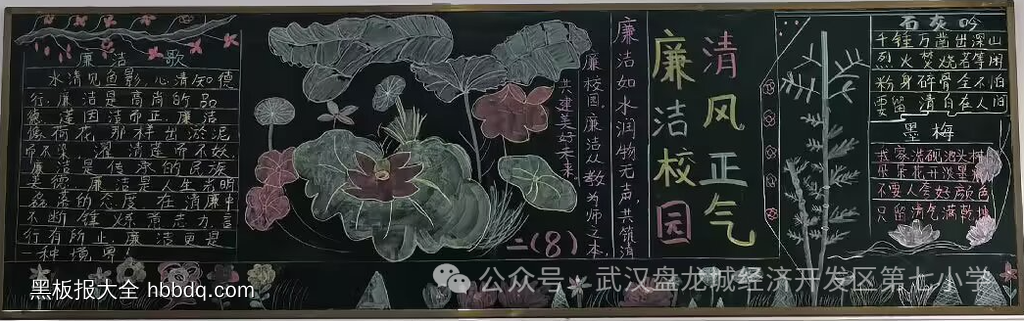 廉洁歌
水清见鱼影,心清知德
行,廉洁是高尚的品
德,莲因洁而正,廉洁
像荷花那样出淤泥
而不染,濯清莲而不妖,
廉洁是传承的民族
美德,廉洁是人生
的态度,在清廉中
不断锤炼意志力,言
行有所止,廉洁更是
一种境界
廉洁如水润物无声,共筑清
廉校园,廉洁从教为师之本,
共建美好未来
二(8)
清风正气
廉洁校园
石灰吟
千锤万凿出深山
烈火焚烧若等闲
粉身碎骨全不怕
要留清白在人间
墨梅
我家洗砚池头树
朵朵花开淡墨痕
不要人夸好颜色
只留清气满乾坤
黑板报大全 hbbdq.com
公众号 · 武汉盘龙城经济开发区第七小学